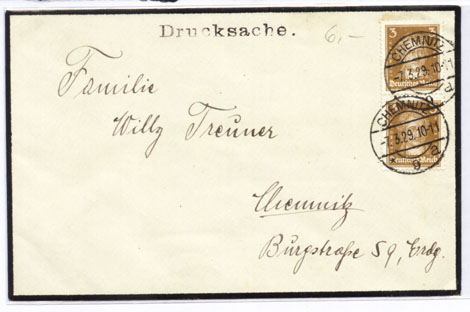 Drucksache.
6,-
3 3
CHEMNITZ
-7.3.29.10-11
Deutsches Reich
Familie
Willy Treuner
CHEMNITZ
-7.3.29.10-11
Deutsches Reich
Chemnitz
Burgstraße 59, Erdg.